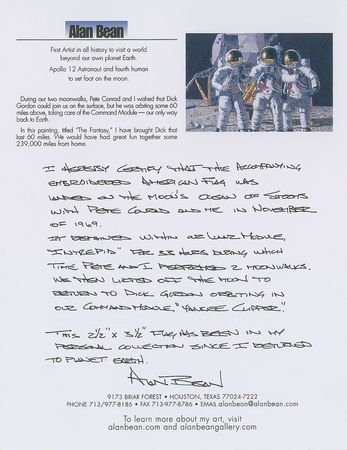 Alan Bean
First Artist in all history to visit a world
beyond our own planet Earth.
Apollo 12 Astronaut and fourth human
to set foot on the moon.
During our two moonwalks, Pete Conrad and I wished that Dick
Gordon could join us on the surface, but he was orbiting some 60
miles above, taking care of the Command Module — our only way
back to Earth.
In this painting, titled "The Fantasy," I have brought Dick that
last 60 miles. We would have had great fun together some
239,000 miles from home.
I HEREBY CERTIFY THAT THE ACCOMPANYING
EMBROIDERED AMERICAN FLAG WAS
LANDED ON THE MOON'S OCEAN OF STORMS
WITH PETE CONRAD AND ME IN NOVEMBER
OF 1969.
IT REMAINED WITHIN OUR LUNAR MODULE,
"INTREPID" FOR 33 HOURS DURING WHICH
TIME PETE AND I PERFORMED 2 MOONWALKS.
WE THEN LIFTED OFF THE MOON TO
RETURN TO DICK GORDON ORBITING IN
OUR COMMAND MODULE, "YANKEE CLIPPER".
THIS 2½" X 3½" FLAG HAS BEEN IN MY
PERSONAL COLLECTION SINCE I RETURNED
TO PLANET EARTH.
ALAN BEAN
9173 BRIAR FOREST • HOUSTON, TEXAS 77024-7222
PHONE 713/977-8186 • FAX 713-977-8786 • EMAIL alanbean@alanbean.com
To learn more about my art, visit
alanbean.com and alanbeangallery.com